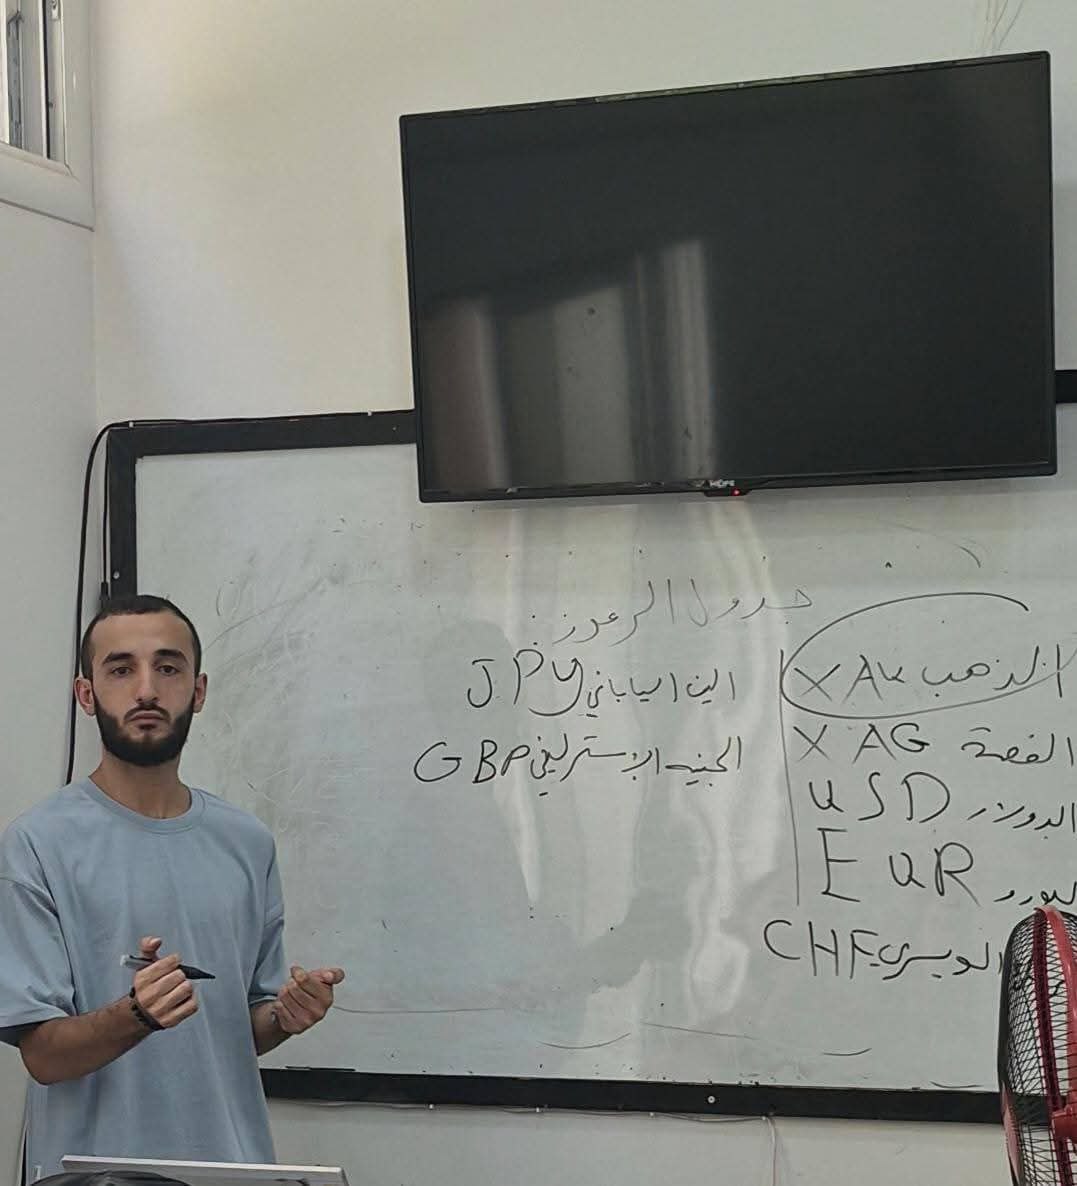 HOPE
جدول الرموز:
الذهب XAu
الفضة XAG
الدولار USD
اليورو EUR
السويسري CHF
الين الياباني JPY
الجنيه الإسترليني GBP